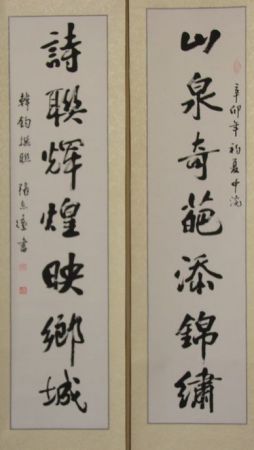 辛卯年初夏中浣
山泉奇葩添錦繡
詩聯輝煌映鄉城
韓鈞撰聯 張志書